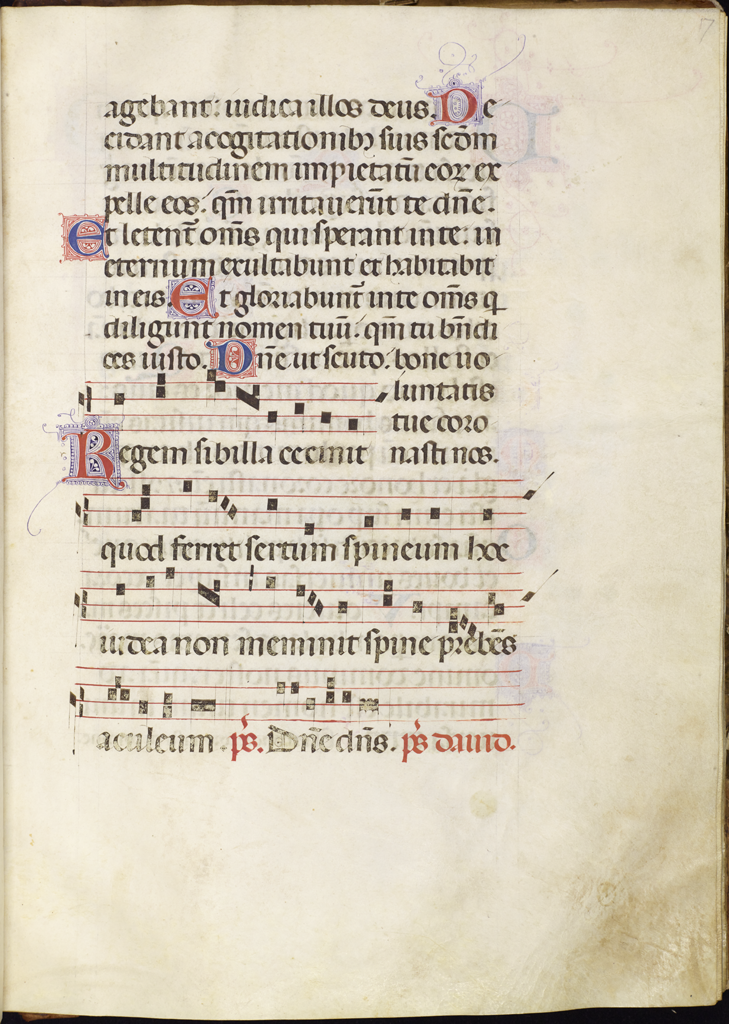 7
agebant: iudica illos deus. De
cidant a cogitationibꝫ suis scd̄m
multitudinem impietatū eoꝝ ex
pelle eos. qm̄ irritauerūt te dn̄e.
Et letent̄ om̄s qui sperant in te: in
eternum exultabunt et habitabit
in eis. Et gloriabunt̄ in te om̄s q
diligunt nomen tuū. qm̄ tu bn̄di
ces iusto. Dn̄e ut scuto. bone uo
luntatis
tue coro
Regem sibilla cecinit nasti nos.
quod ferret sertum spineum hoc
iudea non meminit spine prebēs
aculeum. ps̄. Dn̄e dn̄s. ps̄ dauid.